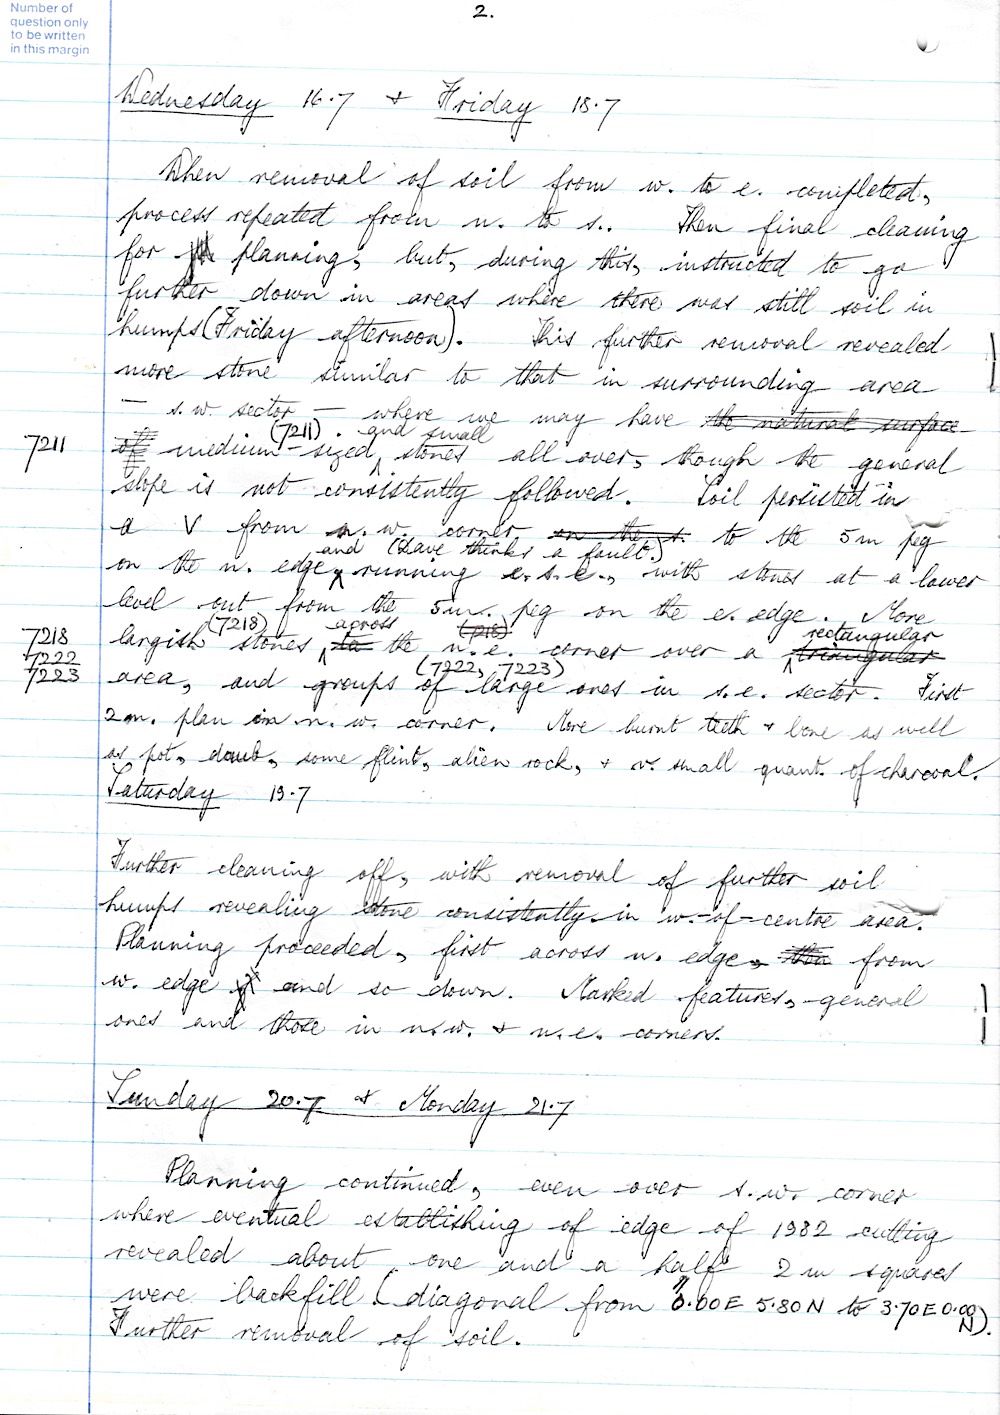 Number of
question only
to be written
in this margin
2.
Wednesday 16.7 + Friday 18.7
When removal of soil from w. to e. completed,
process repeated from n. to s.. Then final cleaning
for planning, but, during this, instructed to go
further down in areas where there was still soil in
humps (Friday afternoon). This further removal revealed
more stone similar to that in surrounding area
— s.w. sector — where we may have the natural surface
7211 of medium-sized (7211). and small stones all over, though the general
slope is not consistently followed. Soil persisted in
a V from n.w. corner on the s. to the 5m peg
on the n. edge, and (Dave thinks a fault.) running e.s.e., with stones at a lower
level out from the 5m. peg on the e. edge. More
7218 largish (7218) stones across to the (p18) n.e. corner over a rectangular triangular
7222
7223 area, and groups of (7222, 7223) large ones in s.e. sector. First
2m. plan in n.w. corner. More burnt teeth + bone as well
as pot, daub, some flint, alien rock, + v. small quant. of charcoal.
Saturday 19.7
Further cleaning off, with removal of further soil
humps revealing stone consistently in w.-of-centre area.
Planning proceeded, first across n. edge, then from
w. edge and so down. Marked features, general
ones and those in n.w. + n.e. corners.
Sunday 20.7 + Monday 21.7
Planning continued, even over s.w. corner
where eventual establishing of edge of 1982 cutting
revealed about one and a half 2m squares
were backfill (diagonal from 0.00E 5.80N to 3.70E 0.00
N).
Further removal of soil.